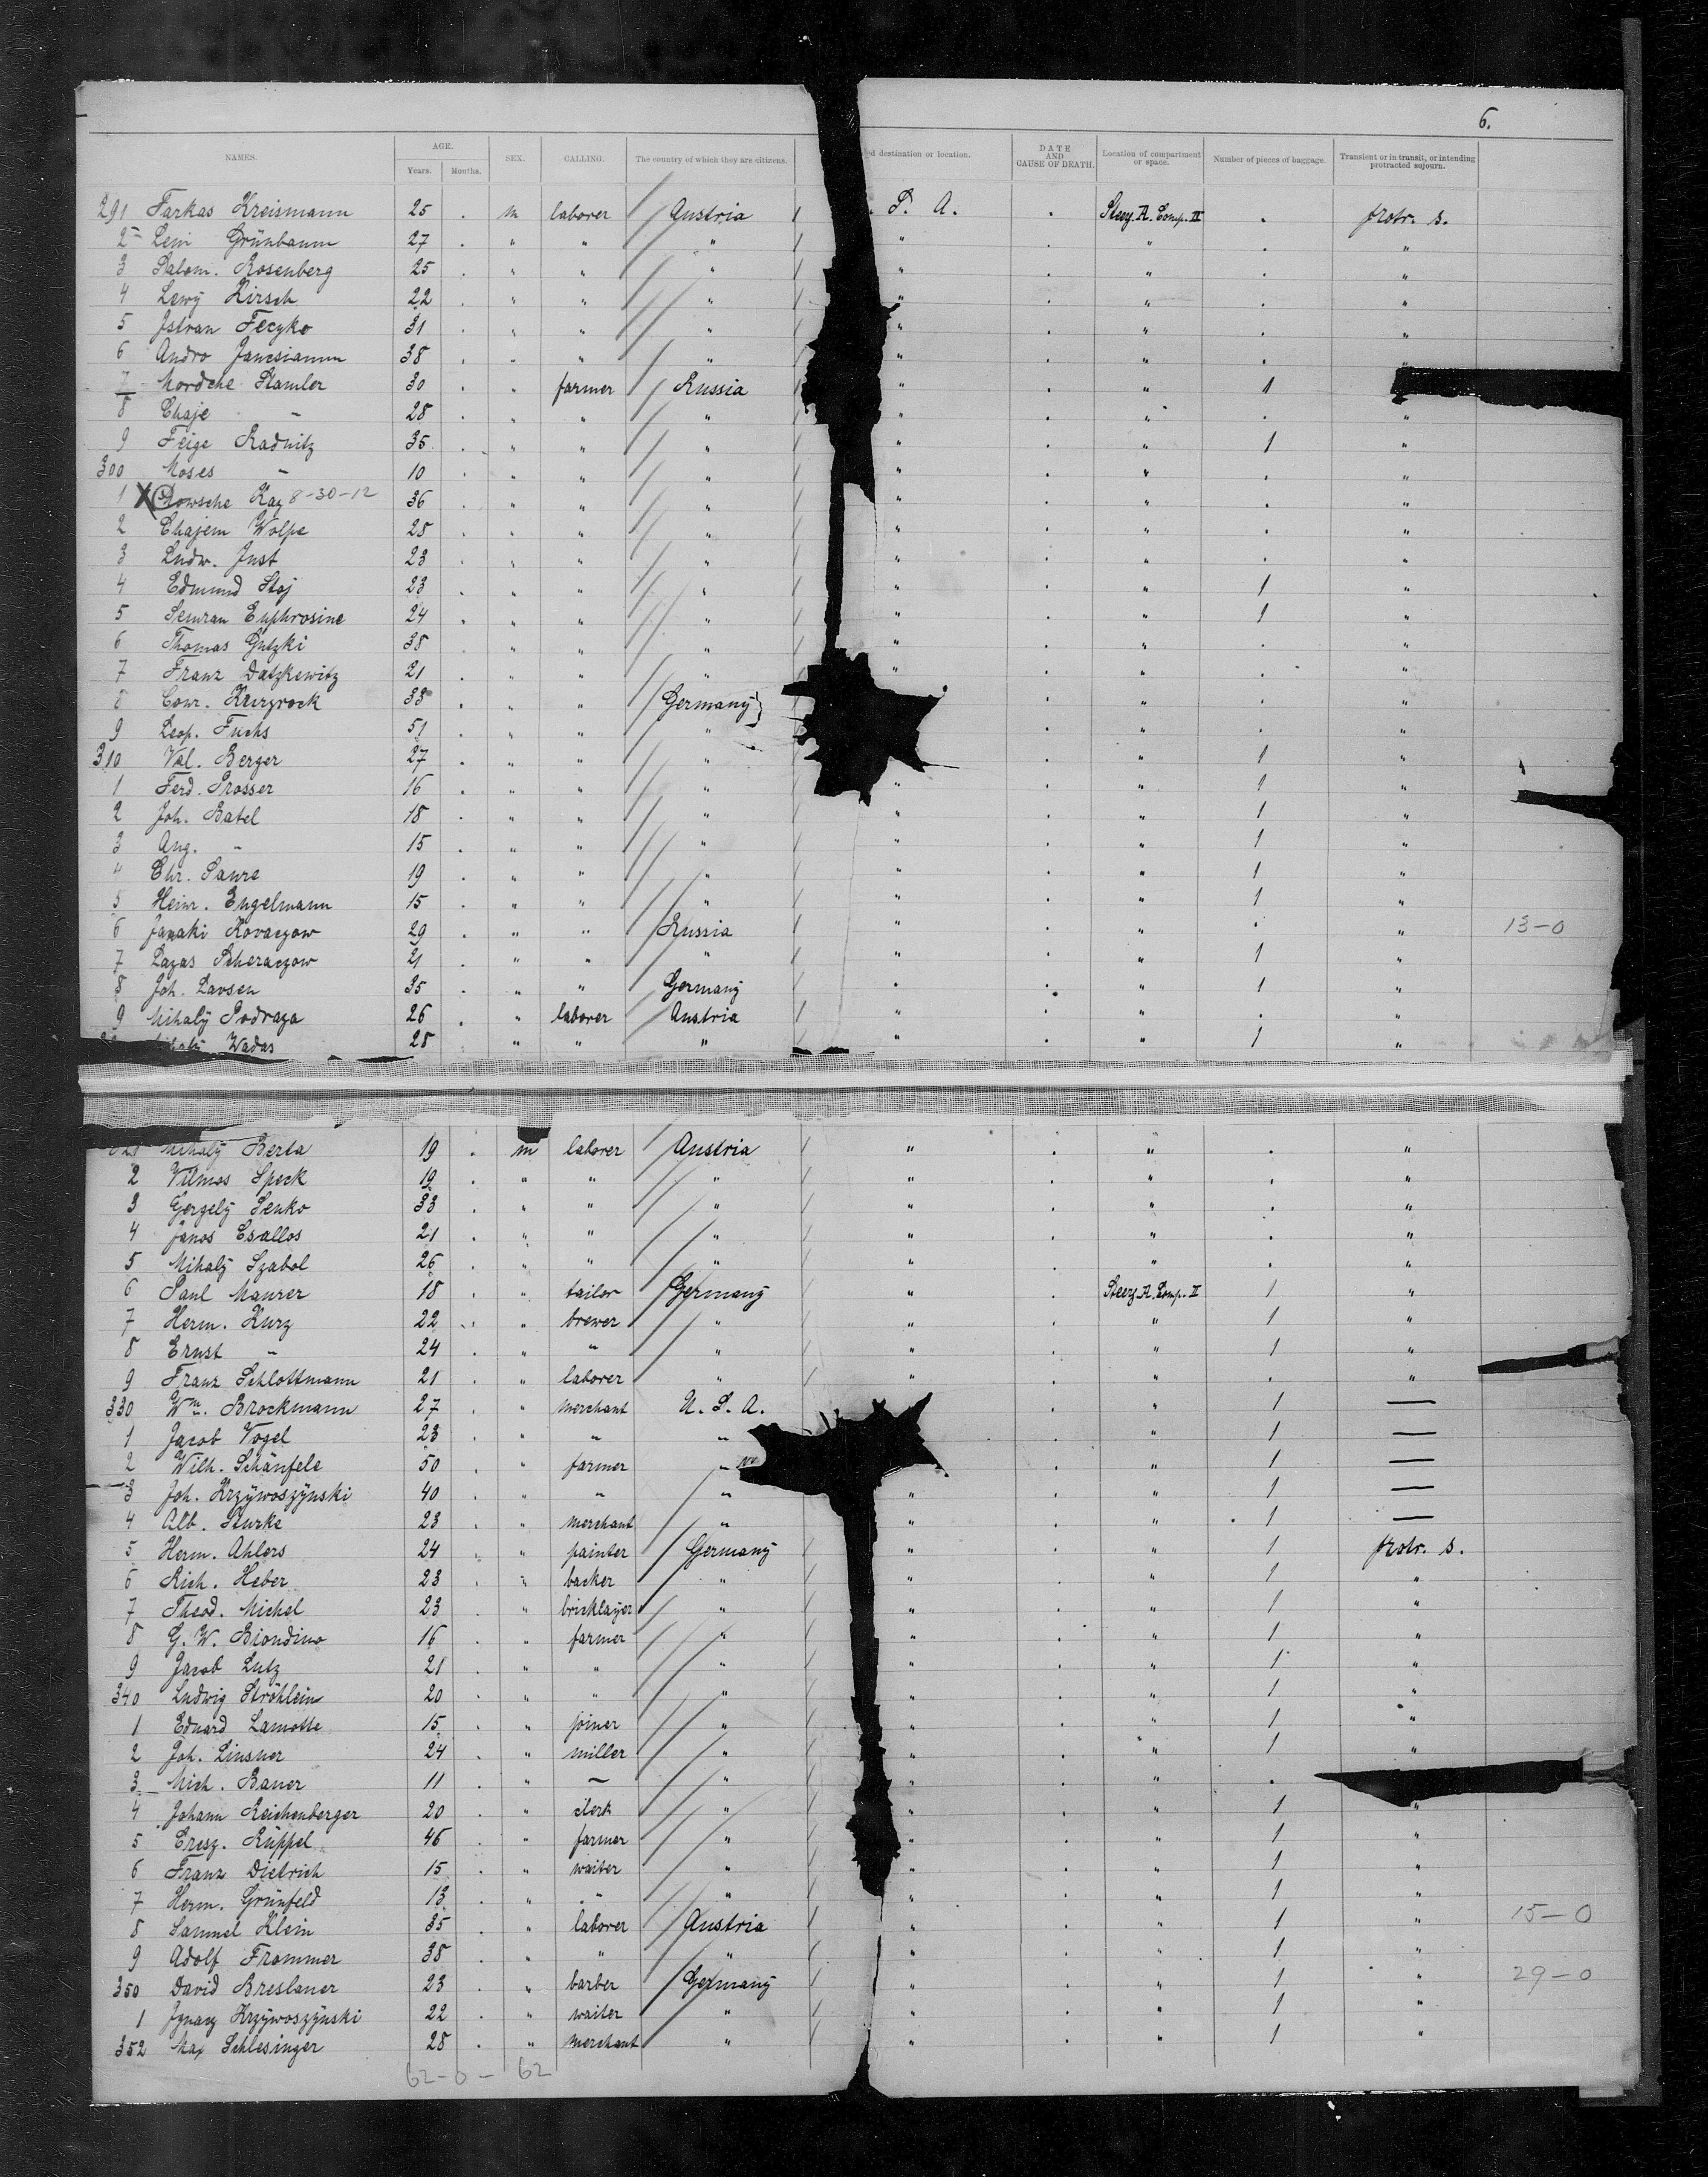 6.
NAMES. AGE. Years. Months. SEX. CALLING. The country of which they are citizens. d destination or location. DATE AND CAUSE OF DEATH. Location of compartment or space. Number of pieces of baggage. Transient or in transit, or intending protracted sojourn.
291 Farkas Kreismann 25 . m laborer Austria / S. A. . Steerg. A. Comp. II . protr. s.
2 Leni Grünbaum 27 . " " " / " . " . "
3 Salom. Rosenberg 25 . " " " / " . " . "
4 Lewy Hirsch 22 . " " " / " . " . "
5 Istvan Feczko 31 . " " " / " . " . "
6 Andro 38 . " " " / " . " . "
7 Mordche Stamler 30 . " farmer Russia / " . " 1
8 Chaje " 28 . " " " / " . " . "
9 Feige Radnitz 35 . " " " / " . " 1 "
300 Moses " 10 . " " " / " . " . "
1 X Mowsche Kag 8-30-12 36 . " " " / " . " . "
2 Chajem Wolpe 28 . " " " / " . " . "
3 Ludw. Just 23 . " " " / " . " . "
4 Edmund Stoj 23 . " " " / " . " 1 "
5 Semran Euphrosine 24 . " " " / " . " 1 "
6 Thomas Gutzki 38 . " " " / " . " . "
7 Franz Datzkewitz 21 . " " " " . " . "
8 Conr. Kurzrock 33 . " " Germany . " . "
9 Leop. Fuchs 51 . " " " . " . "
310 Val. Berger 27 . " " " . " 1 "
1 Ferd. Prosser 16 . " " " / " . " 1 "
2 Joh. Batel 18 . " " " / " . " 1 "
3 Aug. " 15 . " " " / " . " 1 "
4 Chr. Saure 19 . " " " / " . " 1 "
5 Heinr. Engelmann 15 . " " " / " . " 1 "
6 Janaki Kovaczow 29 . " " Russia / " . " . " 13-0
7 Lazas Scheraczow 21 . " " " / " . " 1 "
8 Joh. Lavsen 35 . " " Germany " . " 1 "
9 Mihaly Podraza 26 . " laborer Austria / " . " . "
Wadas 28 " " " " . " 1 "
321 Mihaly Berta 19 . m laborer Austria / " . " . "
2 Vilmos Speck 19 . " " " / " . " . "
3 Gergely Senko 33 . " " " / " . " . "
4 Janos Csallos 21 . " " " / " . " . "
5 Mihaly Szabol 26 . " " " / " . " . "
6 Paul Maurer 18 . " tailor Germany / " . Steerg A. Comp. II 1 "
7 Herm. Kurz 22 . " brewer " / " . " 1 "
8 Ernst " 24 . " " " / " . " 1 "
9 Franz Schlottmann 21 . " laborer " / " . " . "
330 Wm. Brockmann 27 . " merchant U. S. A. . " 1 —
1 Jacob Vogel 23 . " " " . " 1 —
2 Wilh. Schänfele 50 . " farmer " . " 1 —
3 Joh. Krzywoszynski 40 . " " " " . " 1 —
4 Alb. Sturke 23 . " merchant " " . " 1 —
5 Herm. Ahlers 24 . " painter Germany / " . " 1 protr. s.
6 Rich. Heber 23 . " backer " / " . " 1 "
7 Theod. Michel 23 " bricklayer " / " . " 1 "
8 G. W. Biondino 16 . " farmer " / " . " 1 "
9 Jacob Lutz 21 . " " " / " . " 1 "
340 Ludwig Ströhlein 20 . " " " / " . " 1 "
1 Eduard Lamotte 15 . " joiner " / " . " 1 "
2 Joh. Linsner 24 . " miller " / " . " 1 "
3 Mich. Bauer 11 . " — " / " . " .
4 Johann Reichenberger 20 . " clerk " / " . " 1 "
5 Cresz. Rüppel 46 . " farmer " / " . " 1 "
6 Franz Dietrich 15 . " waiter " / " . " 1 "
7 Herm. Grünfeld 13 . " " " / " . " 1 "
8 Samuel Klein 35 . " laborer Austria / " . " 1 " 15-0
9 Adolf Frommer 38 . " " " / " . " 1 "
350 David Breslauer 23 . " barber Germany / " . " 1 " 29-0
1 Ignacy Krzywoszynski 22 . " waiter " / " . " 1 "
352 Max Schlesinger 28 . " merchant " / " . " 1 "
62-0-62